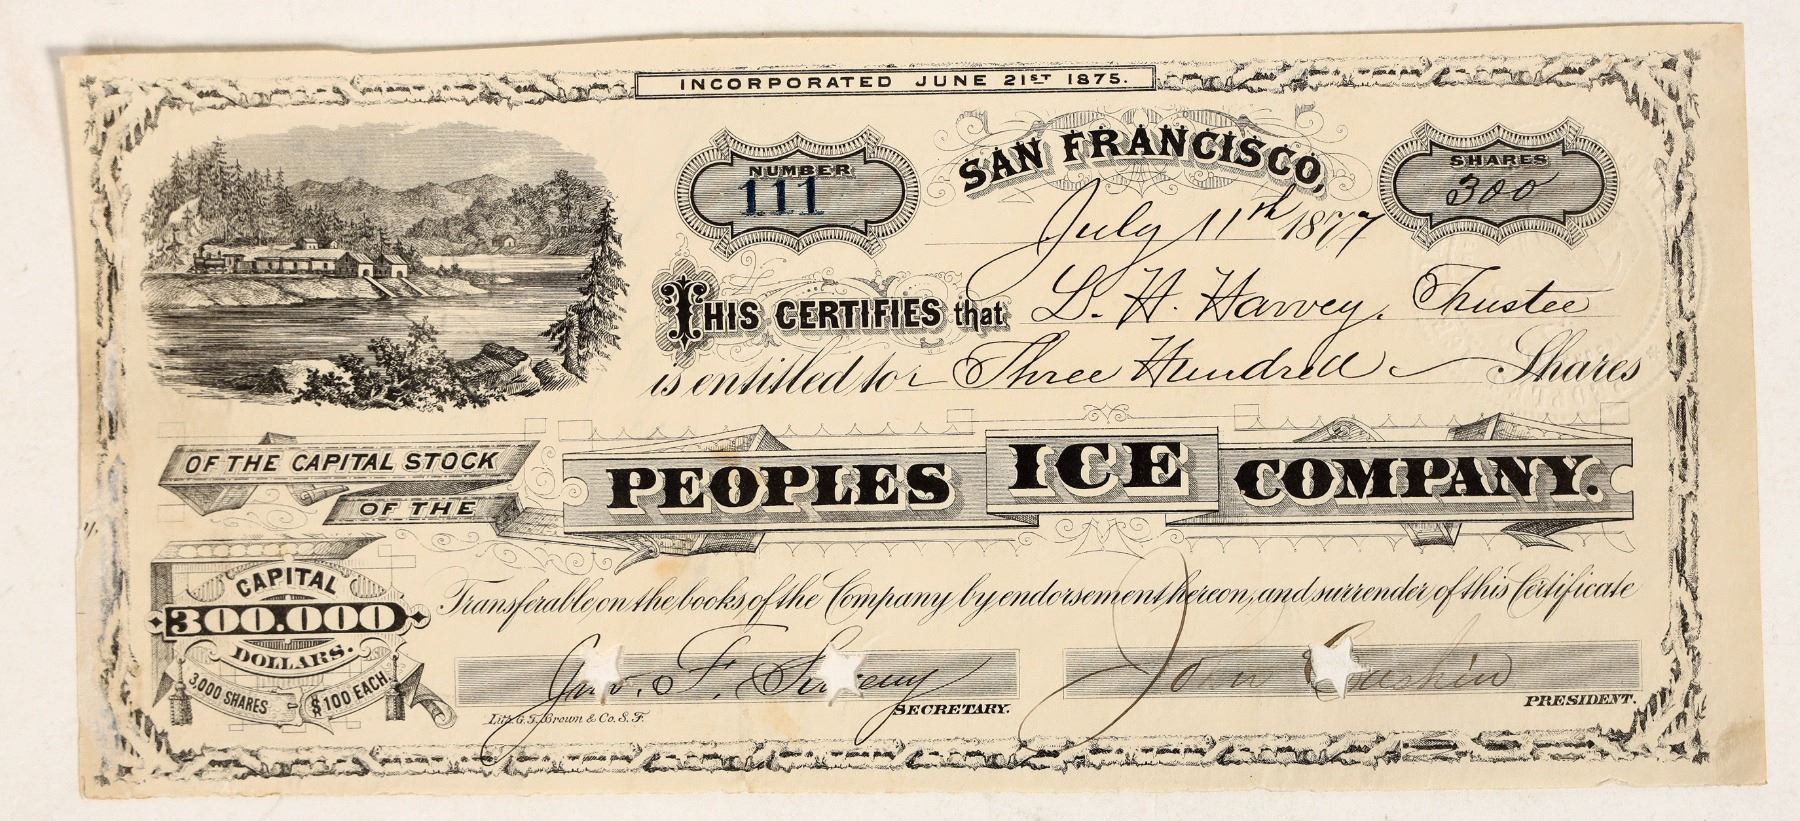 INCORPORATED JUNE 21ST 1875.
NUMBER
111
SAN FRANCISCO,
July 11th 1877
SHARES
300
THIS CERTIFIES that L. H. Harvey, Trustee
is entitled to Three Hundred Shares
OF THE CAPITAL STOCK
OF THE
PEOPLES ICE COMPANY.
CAPITAL
300.000
DOLLARS.
3,000 SHARES $100 EACH.
Transferable, on the books of the Company by endorsement hereon, and surrender of this Certificate
Jno. F.
SECRETARY.
John
PRESIDENT.
Lith. G. T. Brown & Co. S. F.